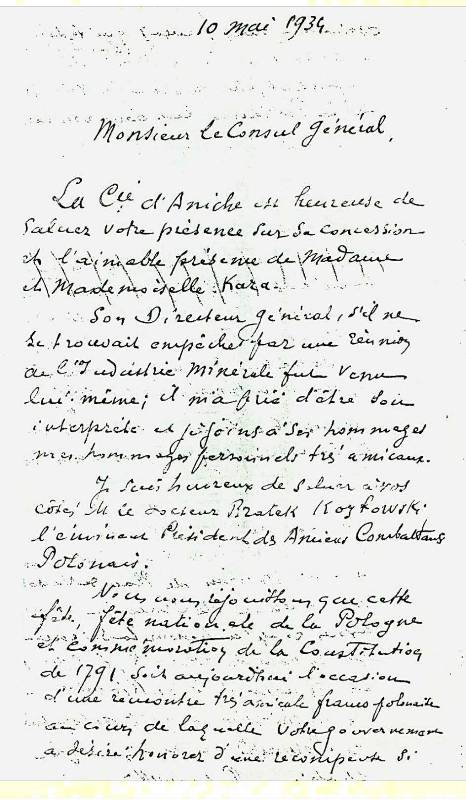 10 mai 1934
Monsieur le Consul Général,
La Cie d'Aniche est heureuse de
saluer votre présence sur sa concession
et l'aimable présence de Madame
et Mademoiselle Kara.
Son Directeur général, s'il ne
se trouvait empêché par une réunion
de l'Industrie Minérale fut venu
lui même ; il m'a prié d'être son
interprète et je joins à ses hommages
mes hommages personnels très amicaux.
Je suis heureux de saluer à vos
côtés M le docteur Bratek
l'éminent Président des Anciens Combattants
Polonais.
Nous nous réjouissons que cette
fête, fête nationale de la Pologne
et commémoration de la Constitution
de 1791 soit aujourd'hui l'occasion
d'une rencontre très amicale franco polonaise
au cours de laquelle votre gouvernement
a désiré honorer d'une récompense si